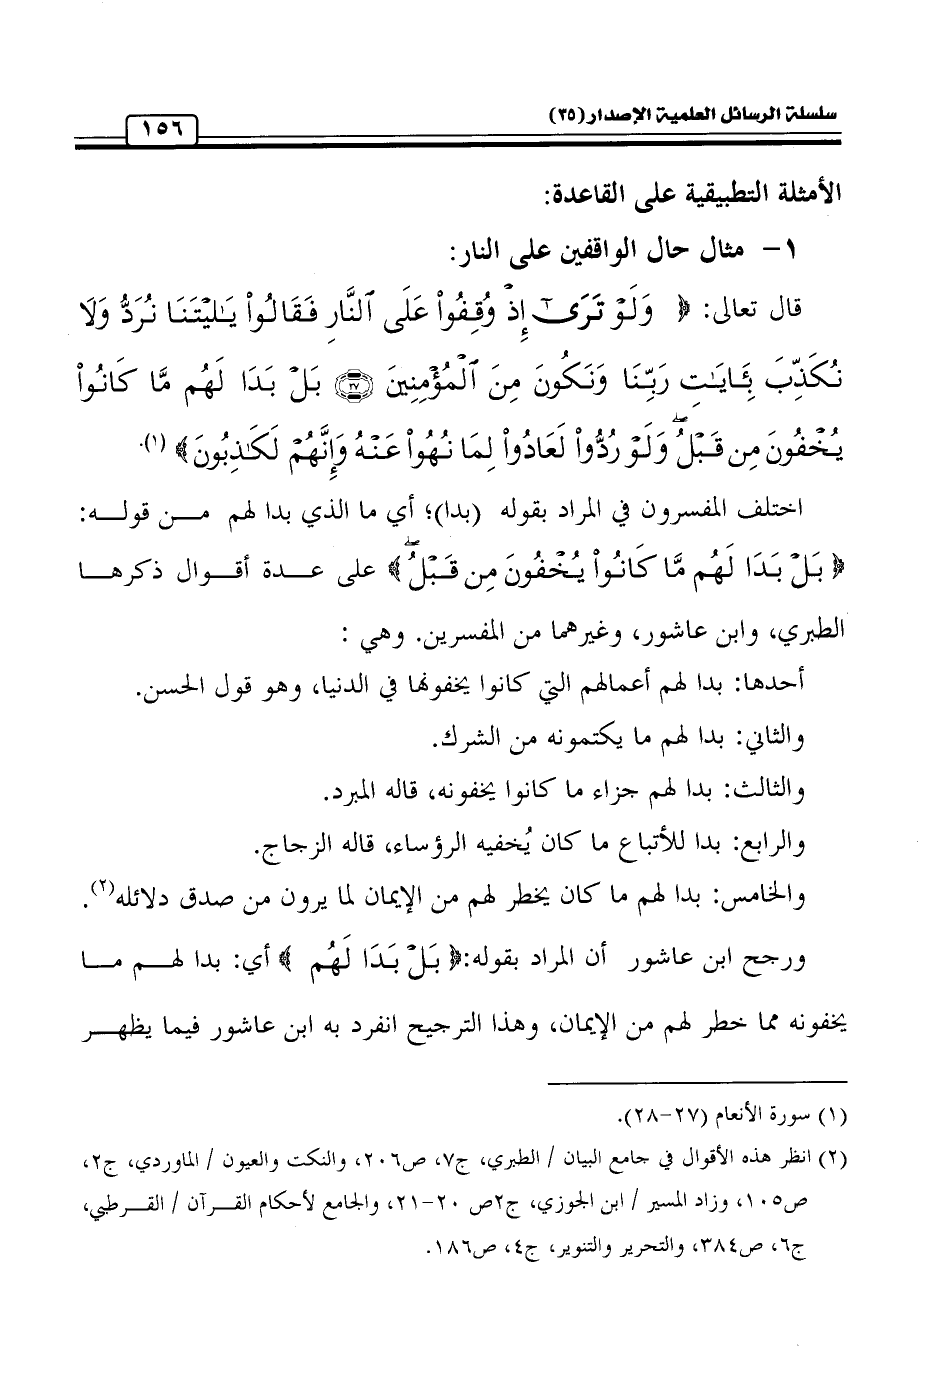 سلسلة الرسائل العلمية الإصدار(٣٥)
١٥٦
الأمثلة التطبيقية على القاعدة:
١- مثال حال الواقفين على النار:
قال تعالى: ﴿ وَلَوْ تَرَىٰٓ إِذْ وُقِفُوا۟ عَلَى ٱلنَّارِ فَقَالُوا۟ يَـٰلَيْتَنَا نُرَدُّ وَلَا
نُكَذِّبَ بِـَٔايَـٰتِ رَبِّنَا وَنَكُونَ مِنَ ٱلْمُؤْمِنِينَ ۝٢٧ بَلْ بَدَا لَهُم مَّا كَانُوا۟
يُخْفُونَ مِن قَبْلُ ۖ وَلَوْ رُدُّوا۟ لَعَادُوا۟ لِمَا نُهُوا۟ عَنْهُ وَإِنَّهُمْ لَكَـٰذِبُونَ ﴾ (١).
اختلف المفسرون في المراد بقوله (بدا)؛ أي ما الذي بدا لهم مــن قولــه:
﴿ بَلْ بَدَا لَهُم مَّا كَانُوا۟ يُخْفُونَ مِن قَبْلُ ۖ ﴾ على عدة أقــوال ذكرهــا
الطبري، وابن عاشور، وغيرهما من المفسرين. وهي :
أحدها: بدا لهم أعمالهم التي كانوا يخفونها في الدنيا، وهو قول الحسن.
والثاني: بدا لهم ما يكتمونه من الشرك.
والثالث: بدا لهم جزاء ما كانوا يخفونه، قاله المبرد.
والرابع: بدا للأتباع ما كان يُخفيه الرؤساء، قاله الزجاج.
والخامس: بدا لهم ما كان يخطر لهم من الإيمان لما يرون من صدق دلائله(٢).
ورجح ابن عاشور أن المراد بقوله:﴿ بَلْ بَدَا لَهُم ﴾ أي: بدا لهــم مــا
يخفونه مما خطر لهم من الإيمان، وهذا الترجيح انفرد به ابن عاشور فيما يظهــر
(١) سورة الأنعام (٢٧-٢٨).
(٢) انظر هذه الأقوال في جامع البيان / الطبري، ج٧، ص٢٠٦، والنكت والعيون / الماوردي، ج٢،
ص١٠٥، وزاد المسير / ابن الجوزي، ج٢ص ٢٠-٢١، والجامع لأحكام القــرآن / القــرطبي،
ج٦، ص٣٨٤، والتحرير والتنوير، ج٤، ص١٨٦.